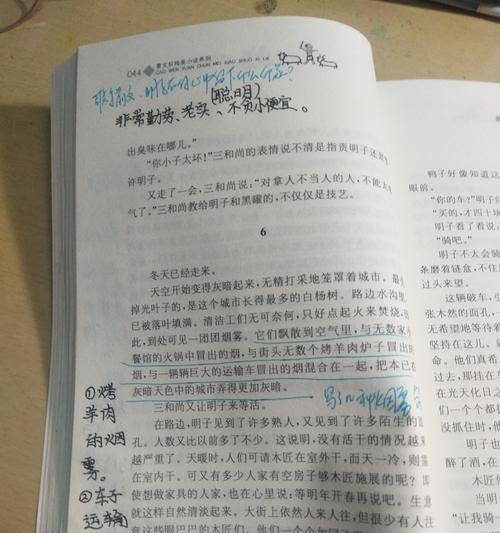 044 曹文轩纯美小说系列
CAO WEN XUAN CHUN MEI XIAO SHUO XI LIE
明子在你心中留下什么
(聪明)
非常勤劳、老实、不贪小便宜。
出臭味在哪儿。”
“你小子太坏!”三和尚的表情说不清是指责明子还是
许明子。
又走了一会,三和尚说:“对拿人不当人的人,不能太
气了。”三和尚教给明子和黑罐的,不仅仅是技艺。
6
冬天已经走来。
天空开始变得灰暗起来,无精打采地笼罩着城市。最
掉光叶子的,是这个城市长得最多的白杨树。路边水沟里
已被落叶填满。清洁工们无可奈何,只好点起火来焚烧,
此,到处可见一团团烟雾。它们飘散到空气里,与无数家
餐馆的火锅中冒出的烟,与街头无数个烤羊肉炉子冒出的
烟,与一辆辆巨大的运输车冒出的烟混合在一起,把本已
灰暗天色中的城市弄得更加灰暗。
三和尚又让明子来等活。
在路边,明子见到了许多熟人,又见到了许多陌生的面
孔。人数又比以前多了不少。这说明,没有活干的情况越来
越严重了。天暖时,人们可请木匠在室外干,而天一冷,则需
在室内干。可又有多少人家有空房子够木匠施展的呢?即
使想做家具的人家,也在心里说:等明年开春再说吧。生意
就这样自然清淡起来。大街上依然人来人往,但很少有人注
意这些眼巴巴的木匠们。他们一个个如同
写了几种烟雾
①烤
羊肉
的烟
雾。
②车子
运输
鸭子好像知道这
眼前。
“你的车?”明子问
“买的,才四十块
明子看了看说:
“骑吧。”
明子不太会骑
条磨着链盒,不住
过头来望。
这辆破车,
张木然的面孔,一
无希望地等待着
坚持在这儿。
命。他们真希
过去,那挂在车
们一个个都
没抓住时,他
醉了酒,在
木匠们
当明
“让我骑一